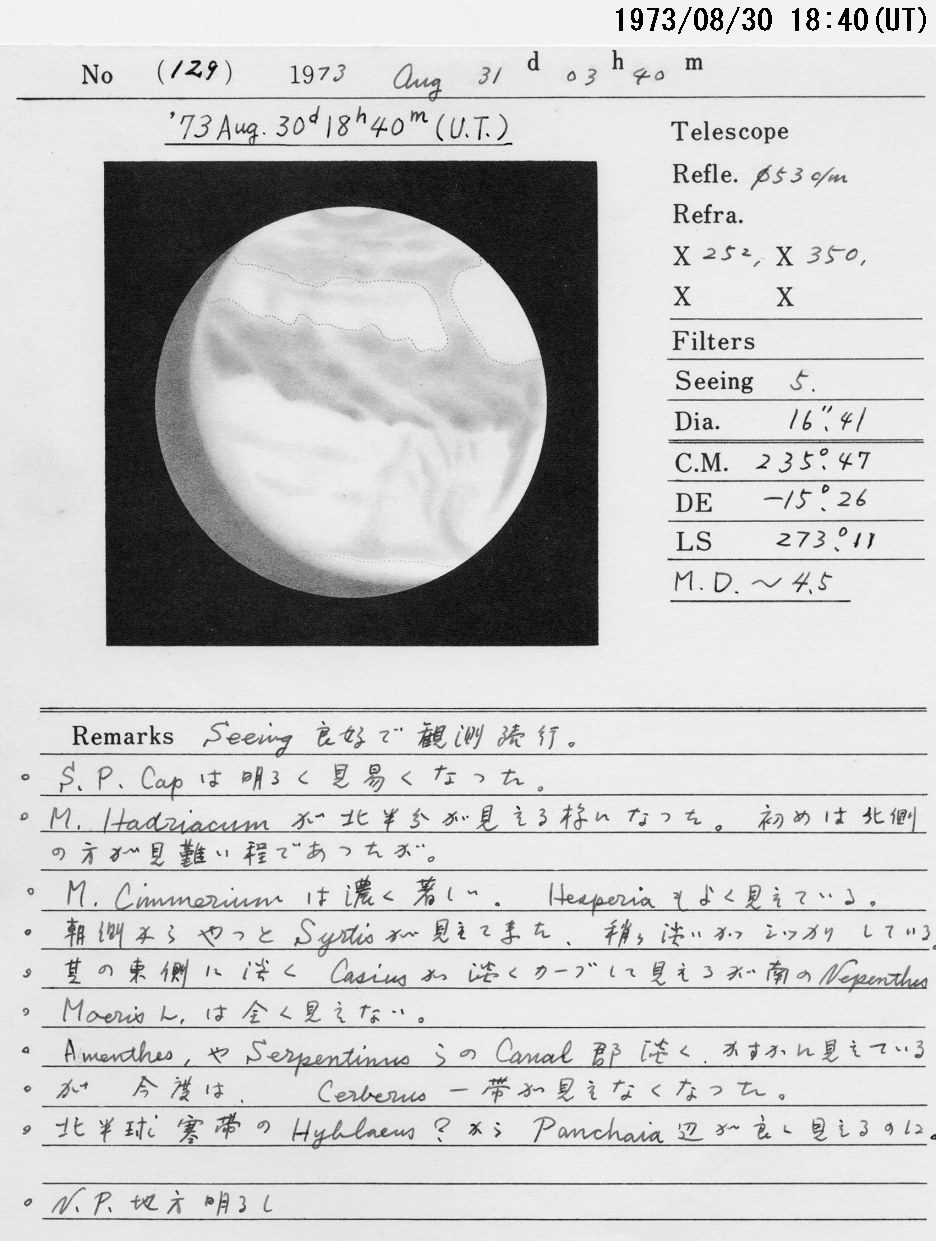 1973/08/30 18:40(UT)
No (129) 1973 Aug 31 d 03 h 40 m
'73 Aug. 30d 18h 40m (U.T.)
Telescope
Refle. φ53 c/m
Refra.
X 252, X 350,
X X
Filters
Seeing 5.
Dia. 16".41
C.M. 235°.47
DE -15°.26
LS 273°.11
M.D. ~ 4.5
Remarks Seeing 良好で観測続行。
○ S. P. Cap は明るく見易くなった。
○ M. Hadriacum が北半分が見える様になった。 初めは北側
の方が見難い程であったが。
○ M. Cimmerium は濃く著しい。 Hesperia もよく見えている。
○ 朝側からやっと Syrtis が見えてきた、稍々淡いがっかり している。
○ 其の東側に淡く Casius が淡くカーブして見えるが南の Nepenthes
○ Moeris L. は全く見えない。
○ Amenthes, や Serpentinus らの Canal 郡 淡く、かすかに見えている
○ が 今度は、 Cerberus 一帯が見えなくなった。
○ 北半球寒帯の Hyblaeus? から Panchaia 辺が良く見えるのに。
○ N. P. 地方明るし